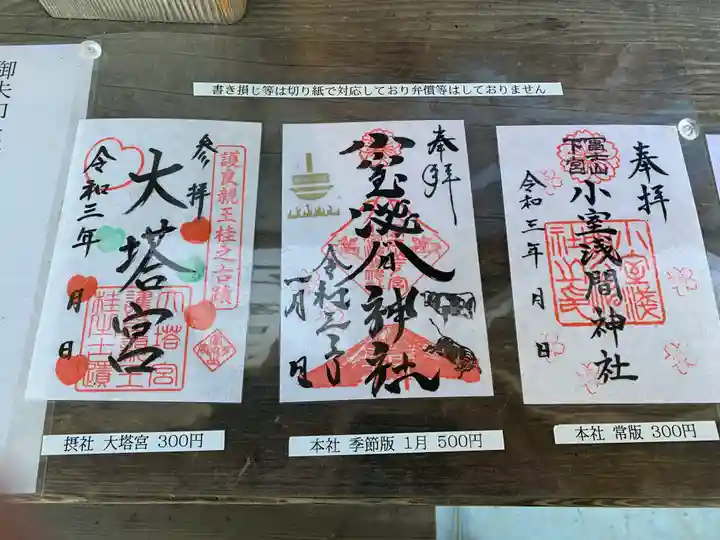 書き損じ等は切り紙で対応しており弁償等はしておりません
参拝
大塔宮
令和三年
月
日
護良親王桂之古蹟
摂社 大塔宮 300円
奉拝
小室浅間神社
令和三年
一月
日
本社 季節版 1月 500円
奉拝
富士山
下宮
小室浅間神社
令和三年
月
日
本社 常版 300円